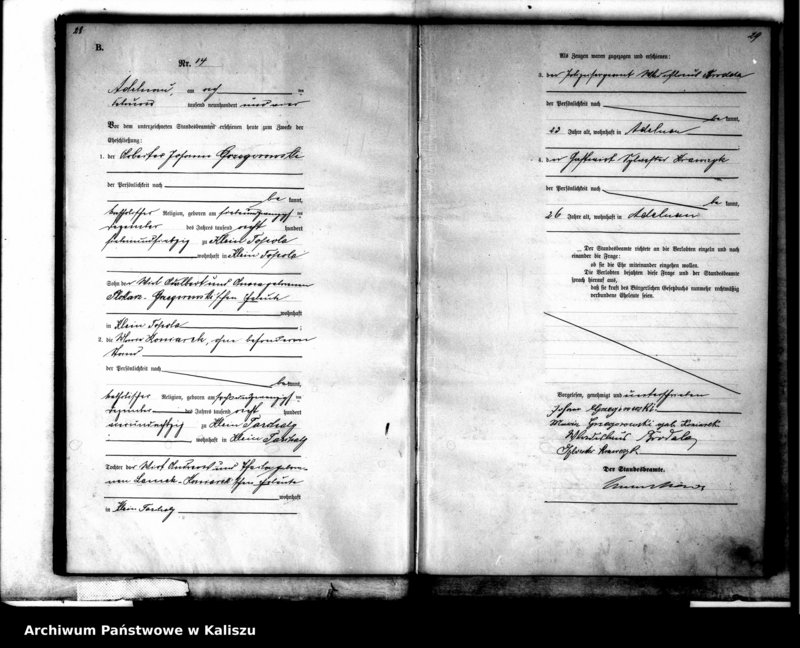 28
B.
Nr. 14
Adelnau, am acht ten
Februar tausend neunhundert und vier
Vor dem unterzeichneten Standesbeamten erschienen heute zum Zwecke der
Eheschließung:
1. der Arbeiter Johann Gregorowski
der Persönlichkeit nach
be kannt,
katholischer Religion, geboren am ten
Dezember des Jahres tausend acht hundert
siebenundsiebzig zu Klein Topola
wohnhaft in Klein Topola
Sohn der Wirt Adalbert und geborenen
schen Eheleute
wohnhaft
in Klein Topola ;
2. die Maria Koniarek, ohne besonderen
Stand
der Persönlichkeit nach
be kannt,
katholischer Religion, geboren am ten
Dezember des Jahres tausend acht hundert
zu Klein
wohnhaft in Klein
Tochter der Wirt Andreas und gebore-
nen Koniarek schen Eheleute
wohnhaft
in Klein
29
Als Zeugen waren zugezogen und erschienen:
3. der Polizeisergeant Brodala
der Persönlichkeit nach
be kannt,
Jahre alt, wohnhaft in Adelnau
4. der Gastwirt Sylvester Krawczyk
der Persönlichkeit nach
be kannt,
26 Jahre alt, wohnhaft in Adelnau
Der Standesbeamte richtete an die Verlobten einzeln und nach
einander die Frage:
ob sie die Ehe miteinander eingehen wollen.
Die Verlobten bejahten diese Frage und der Standesbeamte
sprach hierauf aus,
daß sie kraft des Bürgerlichen Gesetzbuchs nunmehr rechtmäßig
verbundene Eheleute seien.
Vorgelesen, genehmigt und unterschrieben
Johann
Maria geb. Koniarek
Brodala
Krawczyk
Der Standesbeamte.
Archiwum Państwowe w Kaliszu